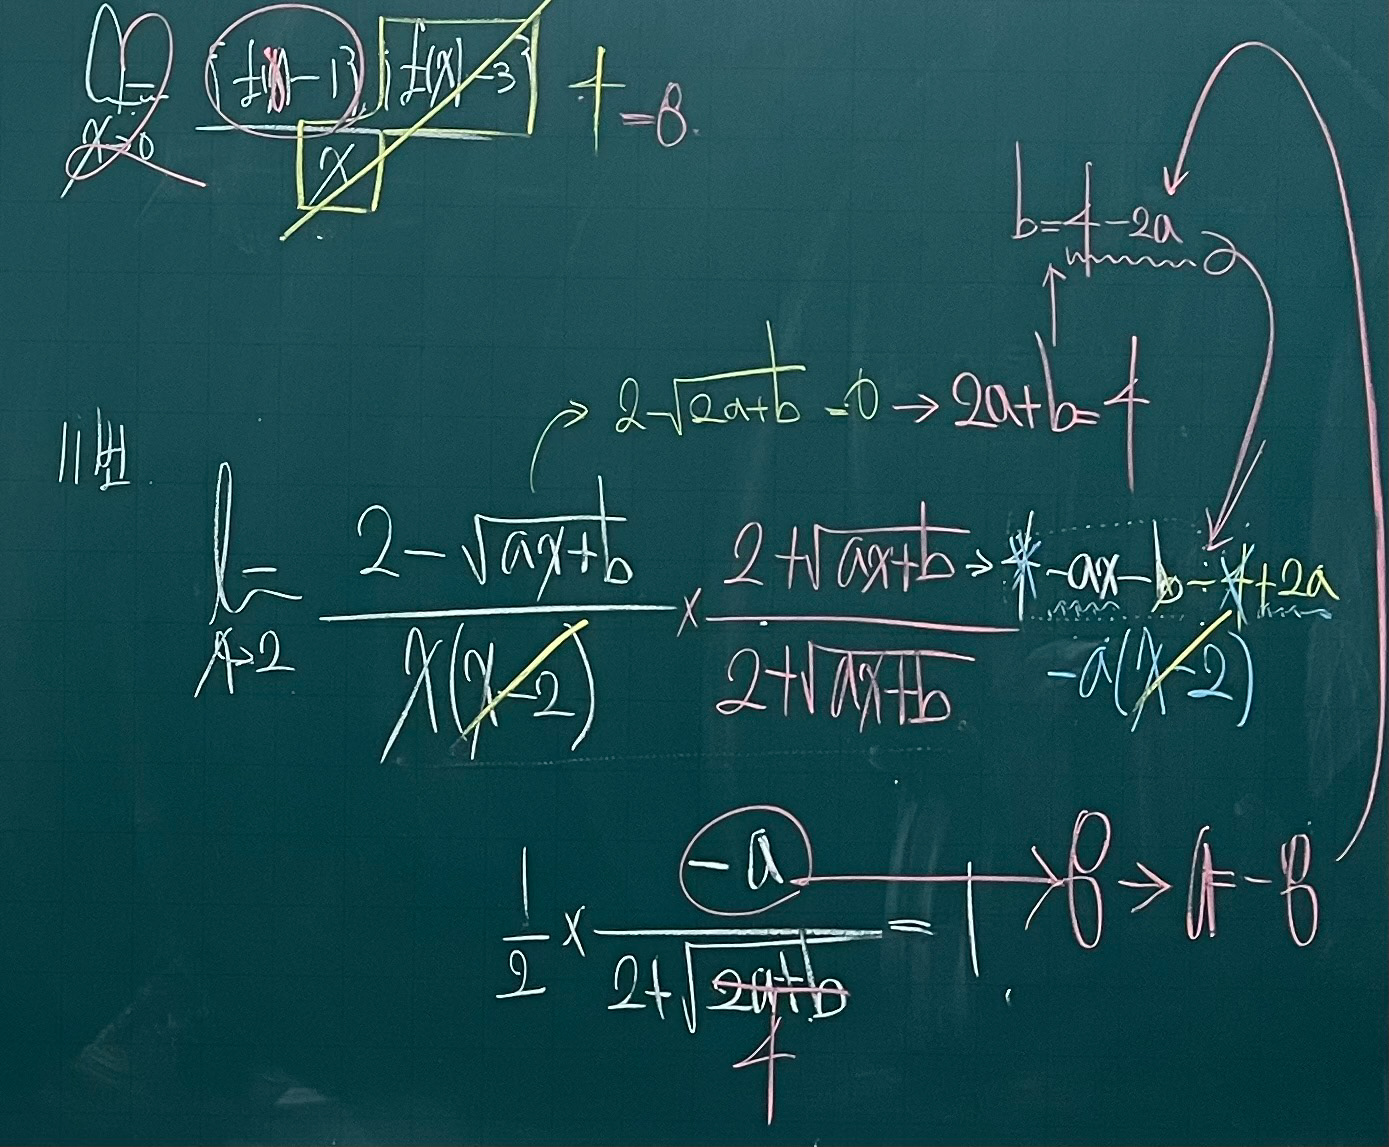 lim x→0 {f(x)-1}{f(x)-3} / x 4 = 8.
b=4-2a
2-√(2a+b) = 0 → 2a+b=4
11번.
lim x→2 (2-√(ax+b)) / (x(x-2)) × (2+√(ax+b)) / (2+√(ax+b)) → 4-ax-b-4+2a
-a(x-2)
1/2 × (-a) / (2+√(2a+b)) = 1 → 8 → a=-8
4